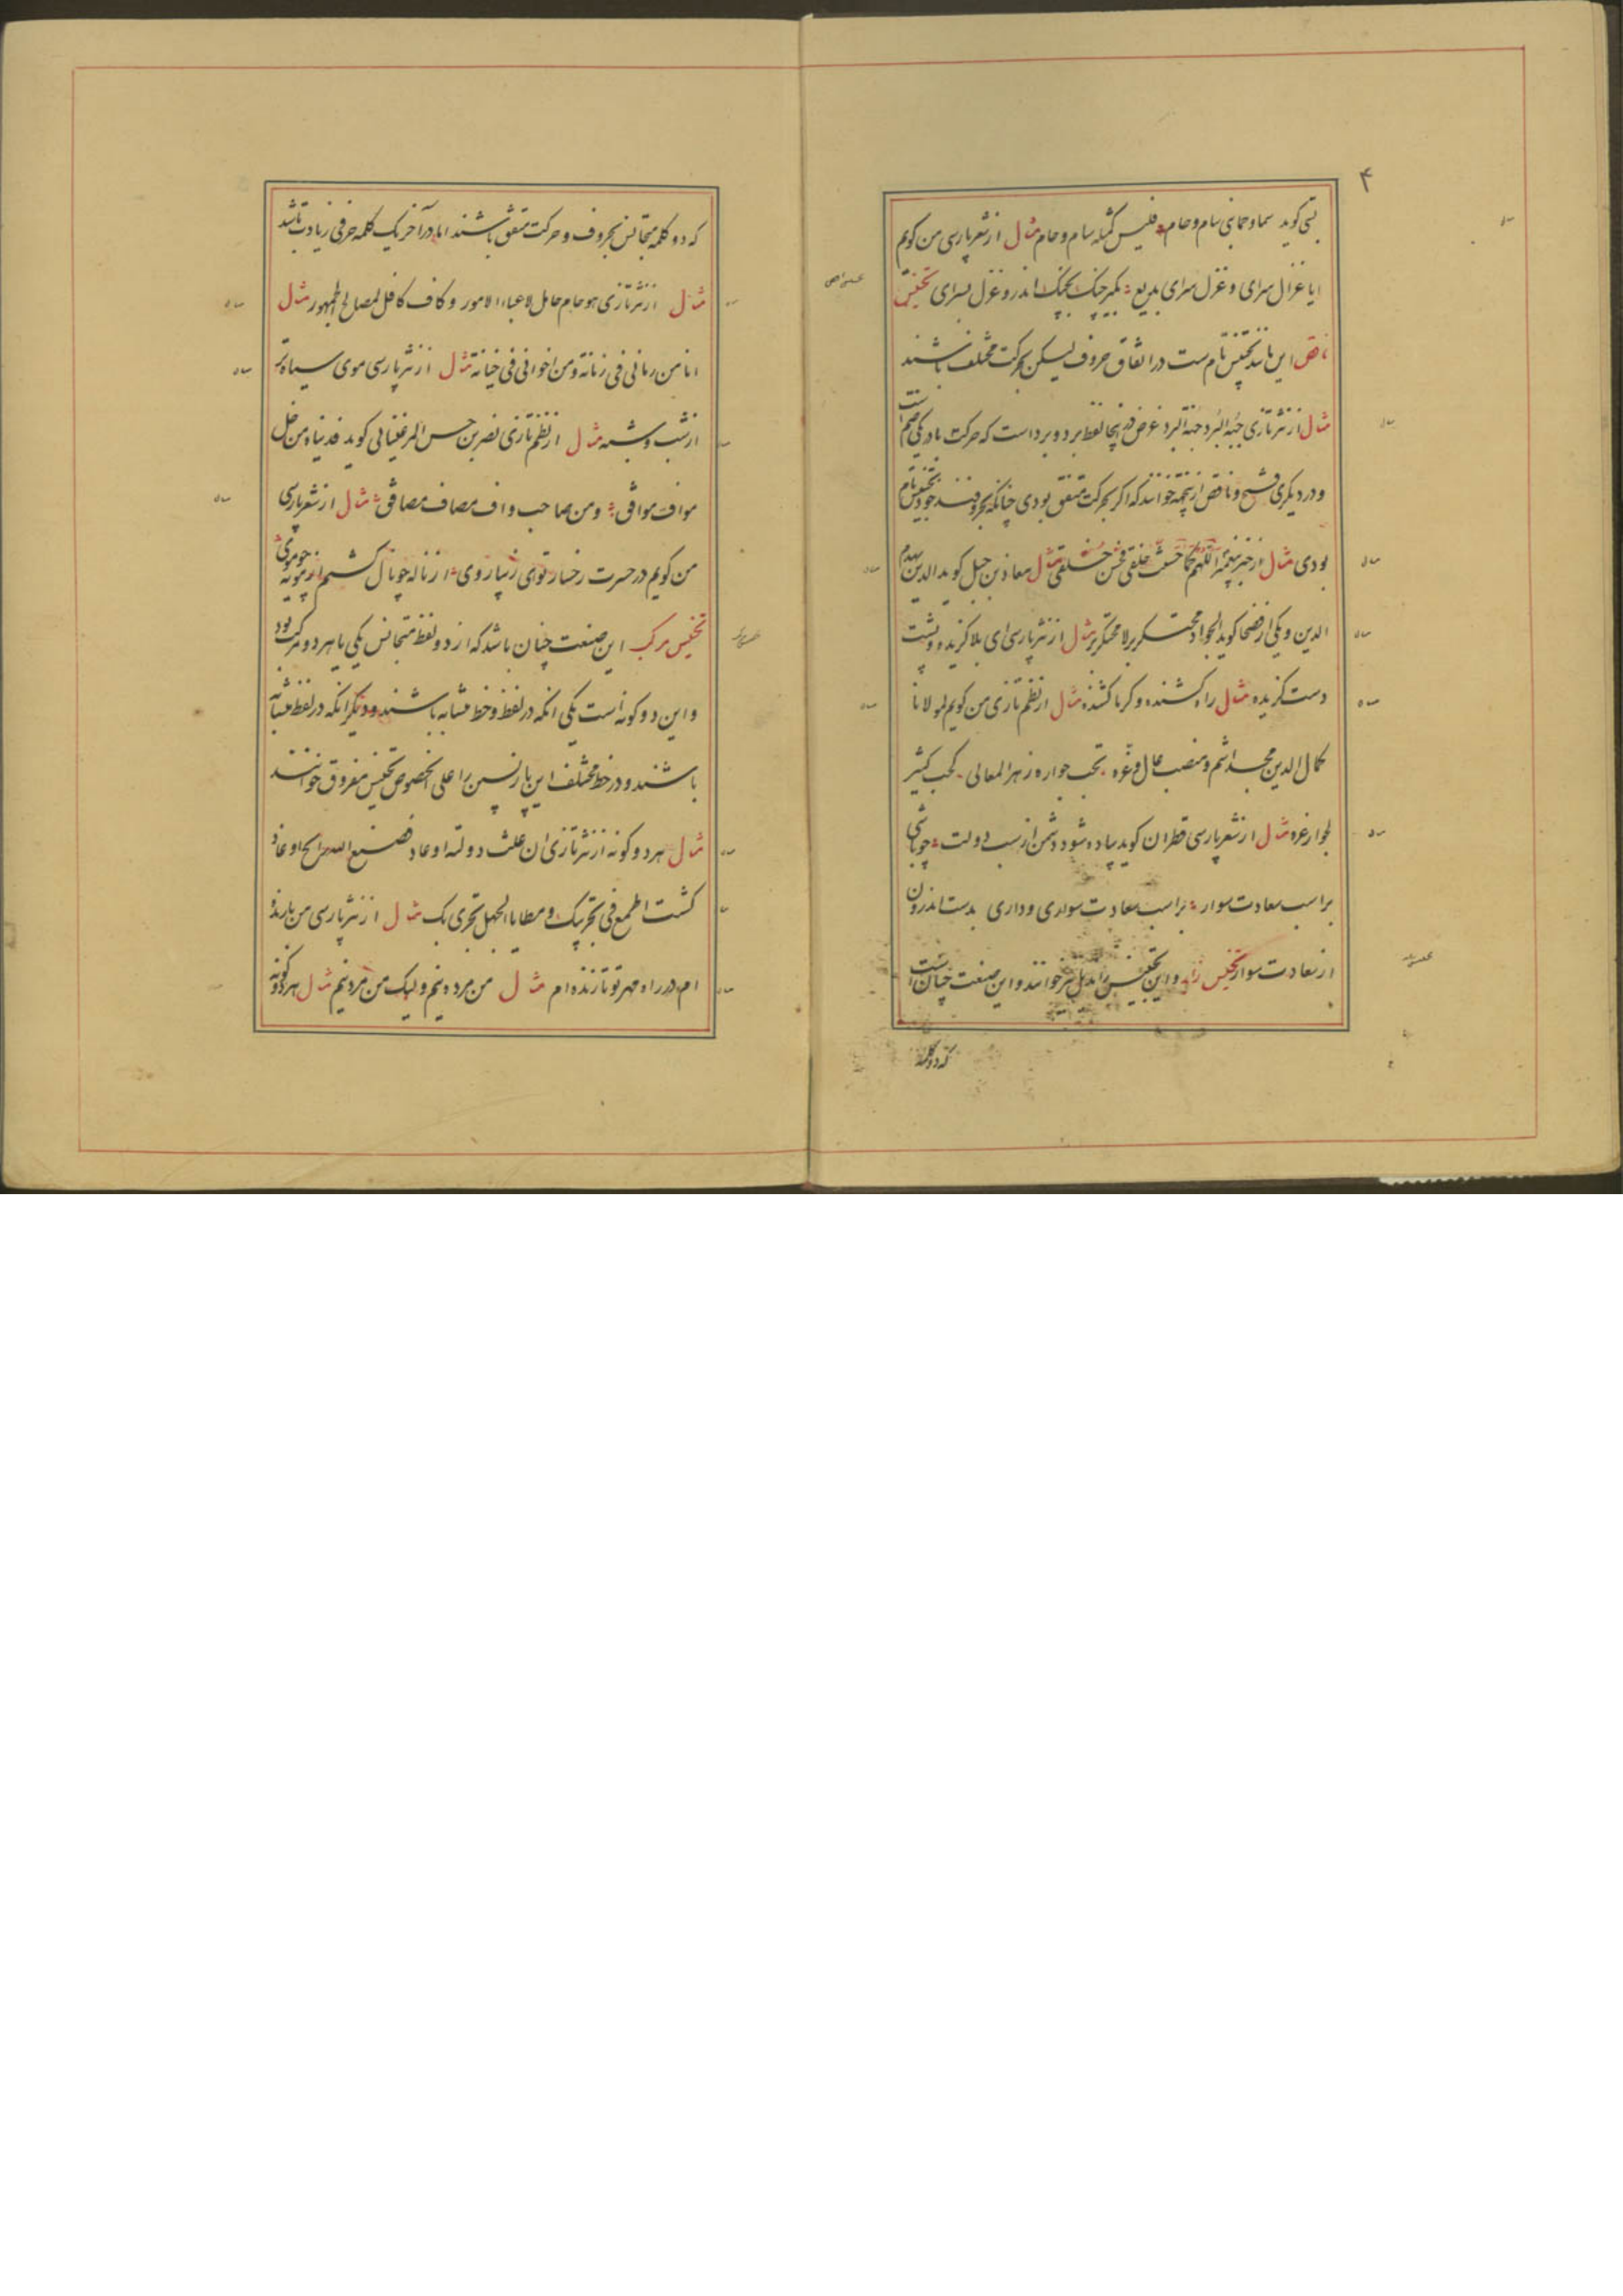 ۴
بستی کوید سما و حمابنی سام و حام فلیس کمثله سام و حام مثال از شعر پارسی من کویم
ایا غزال سرای و غزل سرای بدیع بکیر چنک بچنک اندر و غزل بسرای تجنیس
ناقص این مانند تجنیس تام ست در اتفاق حروف لیکن بحرکت مختلف باشند
مثال از نثر تازی جبة البرد جنة البرد غرض درینجا لفظ برد و برد است که حرکت با در یکی ضم است
و در دیکری فتح و ناقص ازینجهة خوانند که اکر بحرکت متفق بودی چنانکه بحروفند خود تجنیس تام
بودی مثال از خبر پیغمبر اللهم کما حسنت خلقی فحسن خلقی مثال معاذ بن جبل کوید الدین یهدم
الدین و یکی از فضحا کوید الجواد محتکر بر لا محتکر بر مثال از نثر پارسی ای بلا کزیده و پشت
دست کزیده مثال راه کشنده و کرما کشنده مثال از نظم تازی من کویم لمولانا
کمال الدین مجد اشم و منصب عال و غره تحب جواره زهر المعالی کحب کثیر
لجوار غره مثال از شعر پارسی قطران کوید پیاده شود دشمن از اسب دولت چو باشی
بر اسب سعادت سوار بر اسب سعادت سواری و داری بدست اندرون
از سعادت سوار تجنیس زاید و این تجنیس را مذیل نیز خوانند و این صنعت چنان است
که دو کلمه
که دو کلمه متجانس بحروف و حرکت متفق باشند اما در آخر یک کلمه حرفی زیادت باشد
مثال از نثر تازی هو حام حامل لاعباء الامور و کاف کافل لمصالح الجمهور مثال
انا من زمانی فی زمانة و من اخوانی فی خیانة مثال از نثر پارسی موی سیاه تر
از شب و شبه مثال از نظم تازی نصر بن حسن المرغینانی کوید فدیناه من خل
مواف موافق و من صاحب واف مصاف مصافق مثال از شعر پارسی
من کویم در حسرت رخسار تو ای زیبا روی از ناله چو نال کشتم از مویه چو موی
تجنیس مرکب این صنعت چنان باشد که از دو لفظ متجانس یکی یا هر دو مرکب بود
و این دو کونه است یکی انکه در لفظ و خط متشابه باشند و دیکر انکه در لفظ متشابه
باشند و در خط مختلف این بازپسین را علی الخصوص تجنیس مفروق خوانند
مثال هر دو کونه از نثر تازی ان علت دولة اوغاد فصنع الله رایح او غاد
کنت اطمع فی تجریبک و مطایا الجهل تجری بک مثال از نثر پارسی من تا زنده
ام در راه مهر تو تازنده ام مثال من مرده نیم ولیک من مرد نیم مثال هر دو کونه